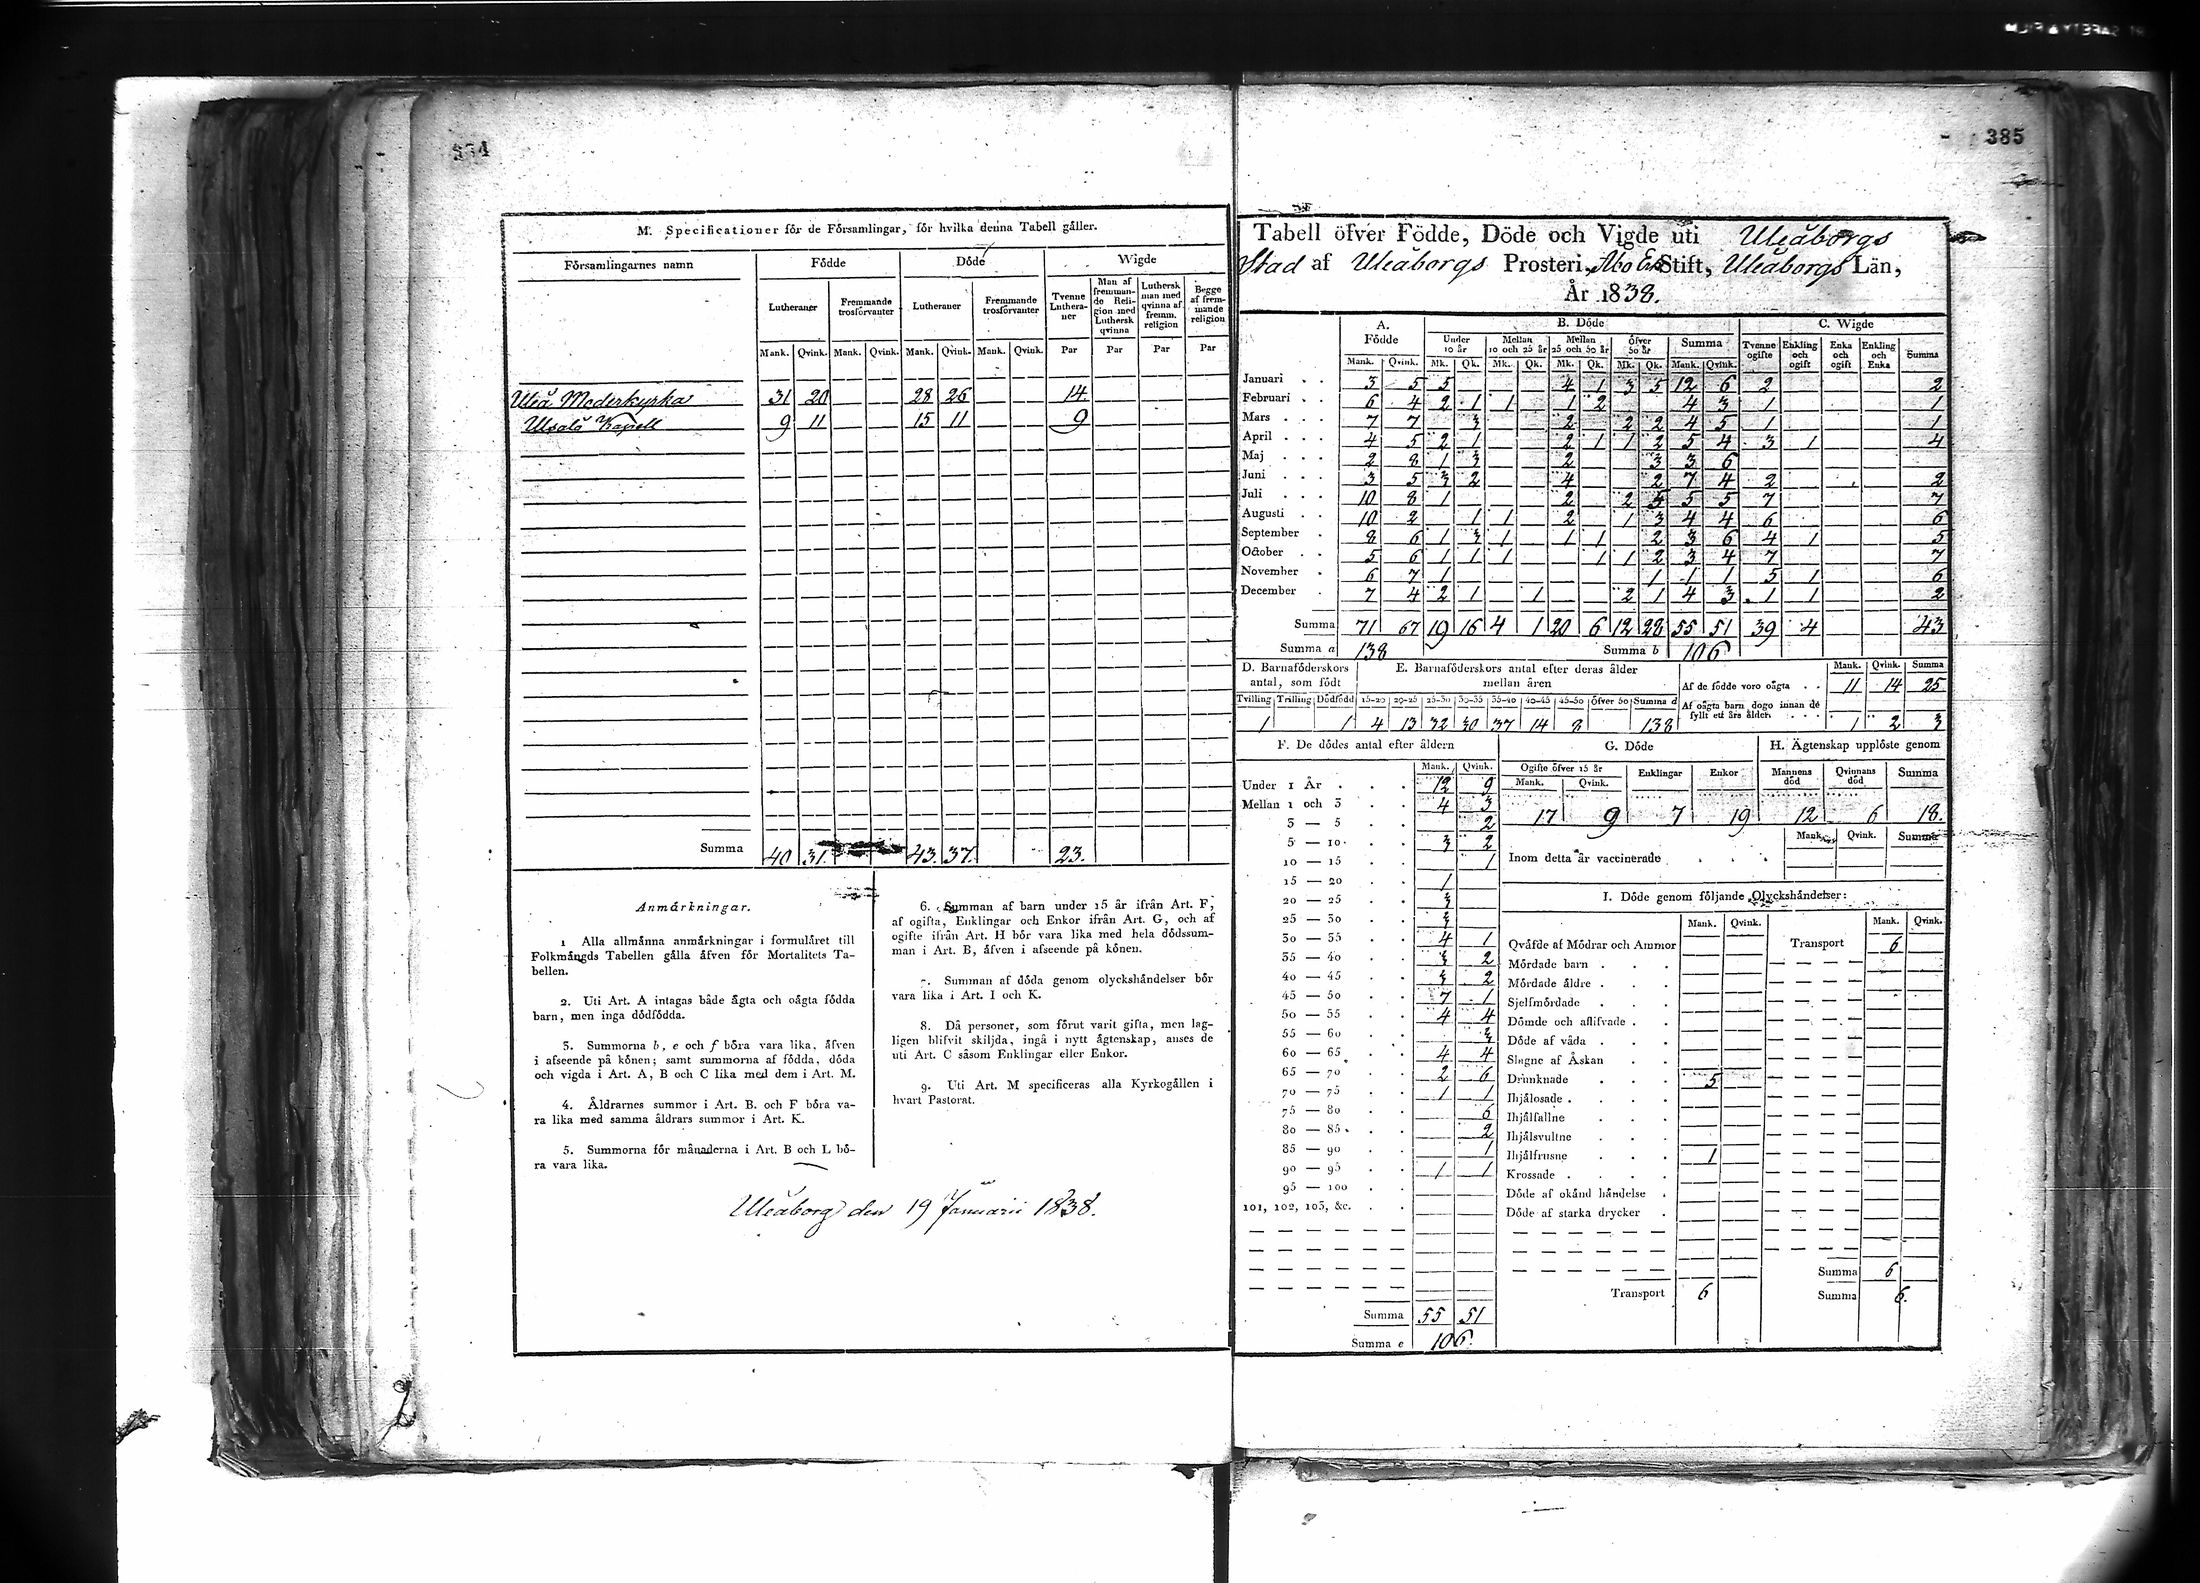 384
M. Specificationer för de Församlingar, för hvilka denna Tabell gäller.
Församlingarnes namn | Födde | Döde | Wigde
Lutheraner | Fremmande trosförvanter | Lutheraner | Fremmande trosförvanter | Tvenne Lutheraner | Man af fremmande Religion med Luthersk qvinna | Luthersk man med qvinna af fremm. religion | Begge af fremmande religion
Mank. | Qvink. | Mank. | Qvink. | Mank. | Qvink. | Mank. | Qvink. | Par | Par | Par | Par
Uleå Moderkyrka 31 20 28 26 14
Kapell 9 11 15 11 9
Summa 40 31. 43. 37. 23.
Anmärkningar.
1 Alla allmänna anmärkningar i formuläret till
Folkmängds Tabellen gälla äfven för Mortalitets Ta-
bellen.
2. Uti Art. A intagas både ägta och oägta födda
barn, men inga dödfödda.
3. Summorna b, e och f böra vara lika, äfven
i afseende på könen; samt summorna af födda, döda
och vigda i Art. A, B och C lika med dem i Art. M.
4. Åldrarnes summor i Art. B. och F böra va-
ra lika med samma åldrars summor i Art. K.
5. Summorna för månaderna i Art. B och L bö-
ra vara lika.
6. Summan af barn under 15 år ifrån Art. F,
af ogifta, Enklingar och Enkor ifrån Art. G, och af
ogifte ifrån Art. H bör vara lika med hela dödssum-
man i Art. B, äfven i afseende på könen.
7. Summan af döda genom olyckshändelser bör
vara lika i Art. I och K.
8. Då personer, som förut varit gifta, men lag-
ligen blifvit skiljda, ingå i nytt ägtenskap, anses de
uti Art. C såsom Enklingar eller Enkor.
9. Uti Art. M specificeras alla Kyrkogällen i
hvart Pastorat.
Uleåborg den 19 Januarii 1838.
385
Tabell öfver Födde, Döde och Vigde uti Uleåborgs
Stad af Uleåborgs Prosteri, Åbo Erke Stift, Uleåborgs Län,
År 1838.
A. Födde | B. Döde | C. Wigde
Under 10 år | Mellan 10 och 25 år | Mellan 25 och 50 år | Öfver 50 år | Summa | Tvenne ogifte | Enkling och ogift | Enka och ogift | Enkling och Enka | Summa
Mank. | Qvink. | Mk. | Qk. | Mk. | Qk. | Mk. | Qk. | Mk. | Qk. | Mank. | Qvink.
Januari 3 5 5 4 1 3 5 12 6 2 2
Februari 6 4 2 1 1 1 2 4 3 1 1
Mars 7 7 3 2 2 2 4 5 1 1
April 4 5 2 1 2 1 1 2 5 4 3 1 4
Maj 2 8 1 3 2 3 3 6
Juni 3 5 3 2 4 2 7 4 2 2
Juli 10 8 1 2 2 5 5 5 7 7
Augusti 10 2 1 1 2 1 3 4 4 6 6
September 8 6 1 3 1 1 1 2 3 6 4 1 5
October 5 6 1 1 1 1 1 2 3 4 7 7
November 6 7 1 1 1 1 5 1 6
December 7 4 2 1 1 2 1 4 3 1 1 2
Summa 71 67 19 16 4 1 20 6 12 28 55 51 39 4 43
Summa a 138 Summa b 106
D. Barnaföderskors antal, som födt | E. Barnaföderskors antal efter deras ålder mellan åren | Mank. | Qvink. | Summa
Tvilling | Trilling | Dödfödd | 15-20 | 20-25 | 25-30 | 30-35 | 35-40 | 40-45 | 45-50 | Öfver 50 | Summa d
1 1 4 13 32 30 37 14 8 138
Af de födde voro oägta 11 14 25
Af oägta barn dogo innan de fyllt ett års ålder 1 2 3
F. De dödes antal efter åldern
Mank. | Qvink.
Under 1 År 12 9
Mellan 1 och 3 4 3
3 — 5 2
5 — 10 3 2
10 — 15 1
15 — 20 1
20 — 25 3
25 — 30 3
30 — 35 4 1
35 — 40 3 2
40 — 45 3 2
45 — 50 7 1
50 — 55 4 4
55 — 60 3
60 — 65 4 4
65 — 70 2 6
70 — 75 1 1
75 — 80 6
80 — 85 2
85 — 90 1
90 — 95 1 1
95 — 100
101, 102, 103, &c.
Summa 55 51
Summa e 106.
G. Döde
Ogifte öfver 15 år | Enklingar | Enkor
Mank. | Qvink.
17 9 7 19
H. Ägtenskap upplöste genom
Mannens död | Qvinnans död | Summa
12 6 18.
Mank. | Qvink. | Summa
Inom detta år vaccinerade
I. Döde genom följande Olyckshändelser:
Mank. | Qvink. | Mank. | Qvink.
Qväfde af Mödrar och Ammor
Mördade barn
Mördade äldre
Sjelfmördade
Dömde och aflifvade
Döde af våda
Slagne af Åskan
Drunknade 5
Ihjälosade
Ihjälfallne
Ihjälsvultne
Ihjälfrusne 1
Krossade
Döde af okänd händelse
Döde af starka drycker
Transport 6
Transport 6
Summa 6
Summa 6.